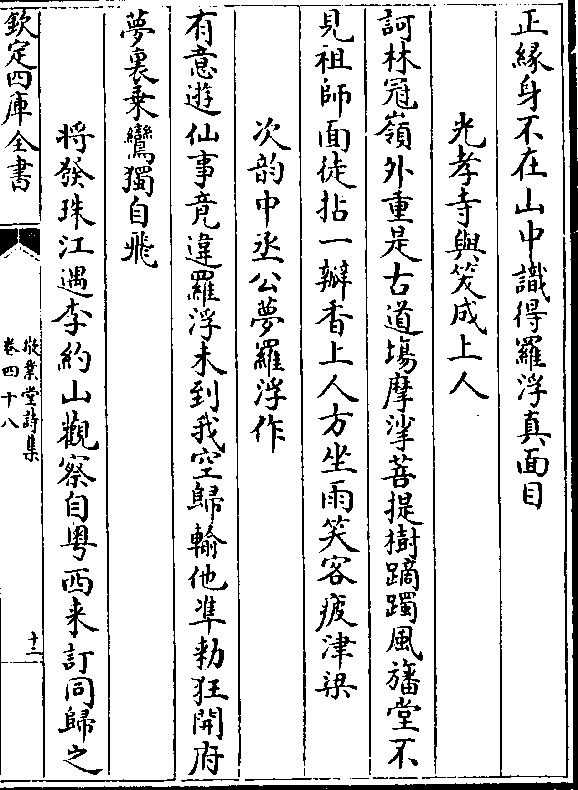 正縁身不在山中識得羅浮真面目
光孝寺與笑成上人
訶林冠嶺外重是古道塲摩挲菩提樹躑躅風旛堂不
見祖師面徒拈一瓣香上人方坐雨笑客疲津梁
次韵中丞公夢羅浮作
有意遊仙事竟違羅浮未到我空歸輸他準勅狂開府
夢裏乗鸞獨自飛
將發珠江遇李約山觀察自粤西来訂同歸之
欽定四庫全書
敬業堂詩集
卷四十八
十二